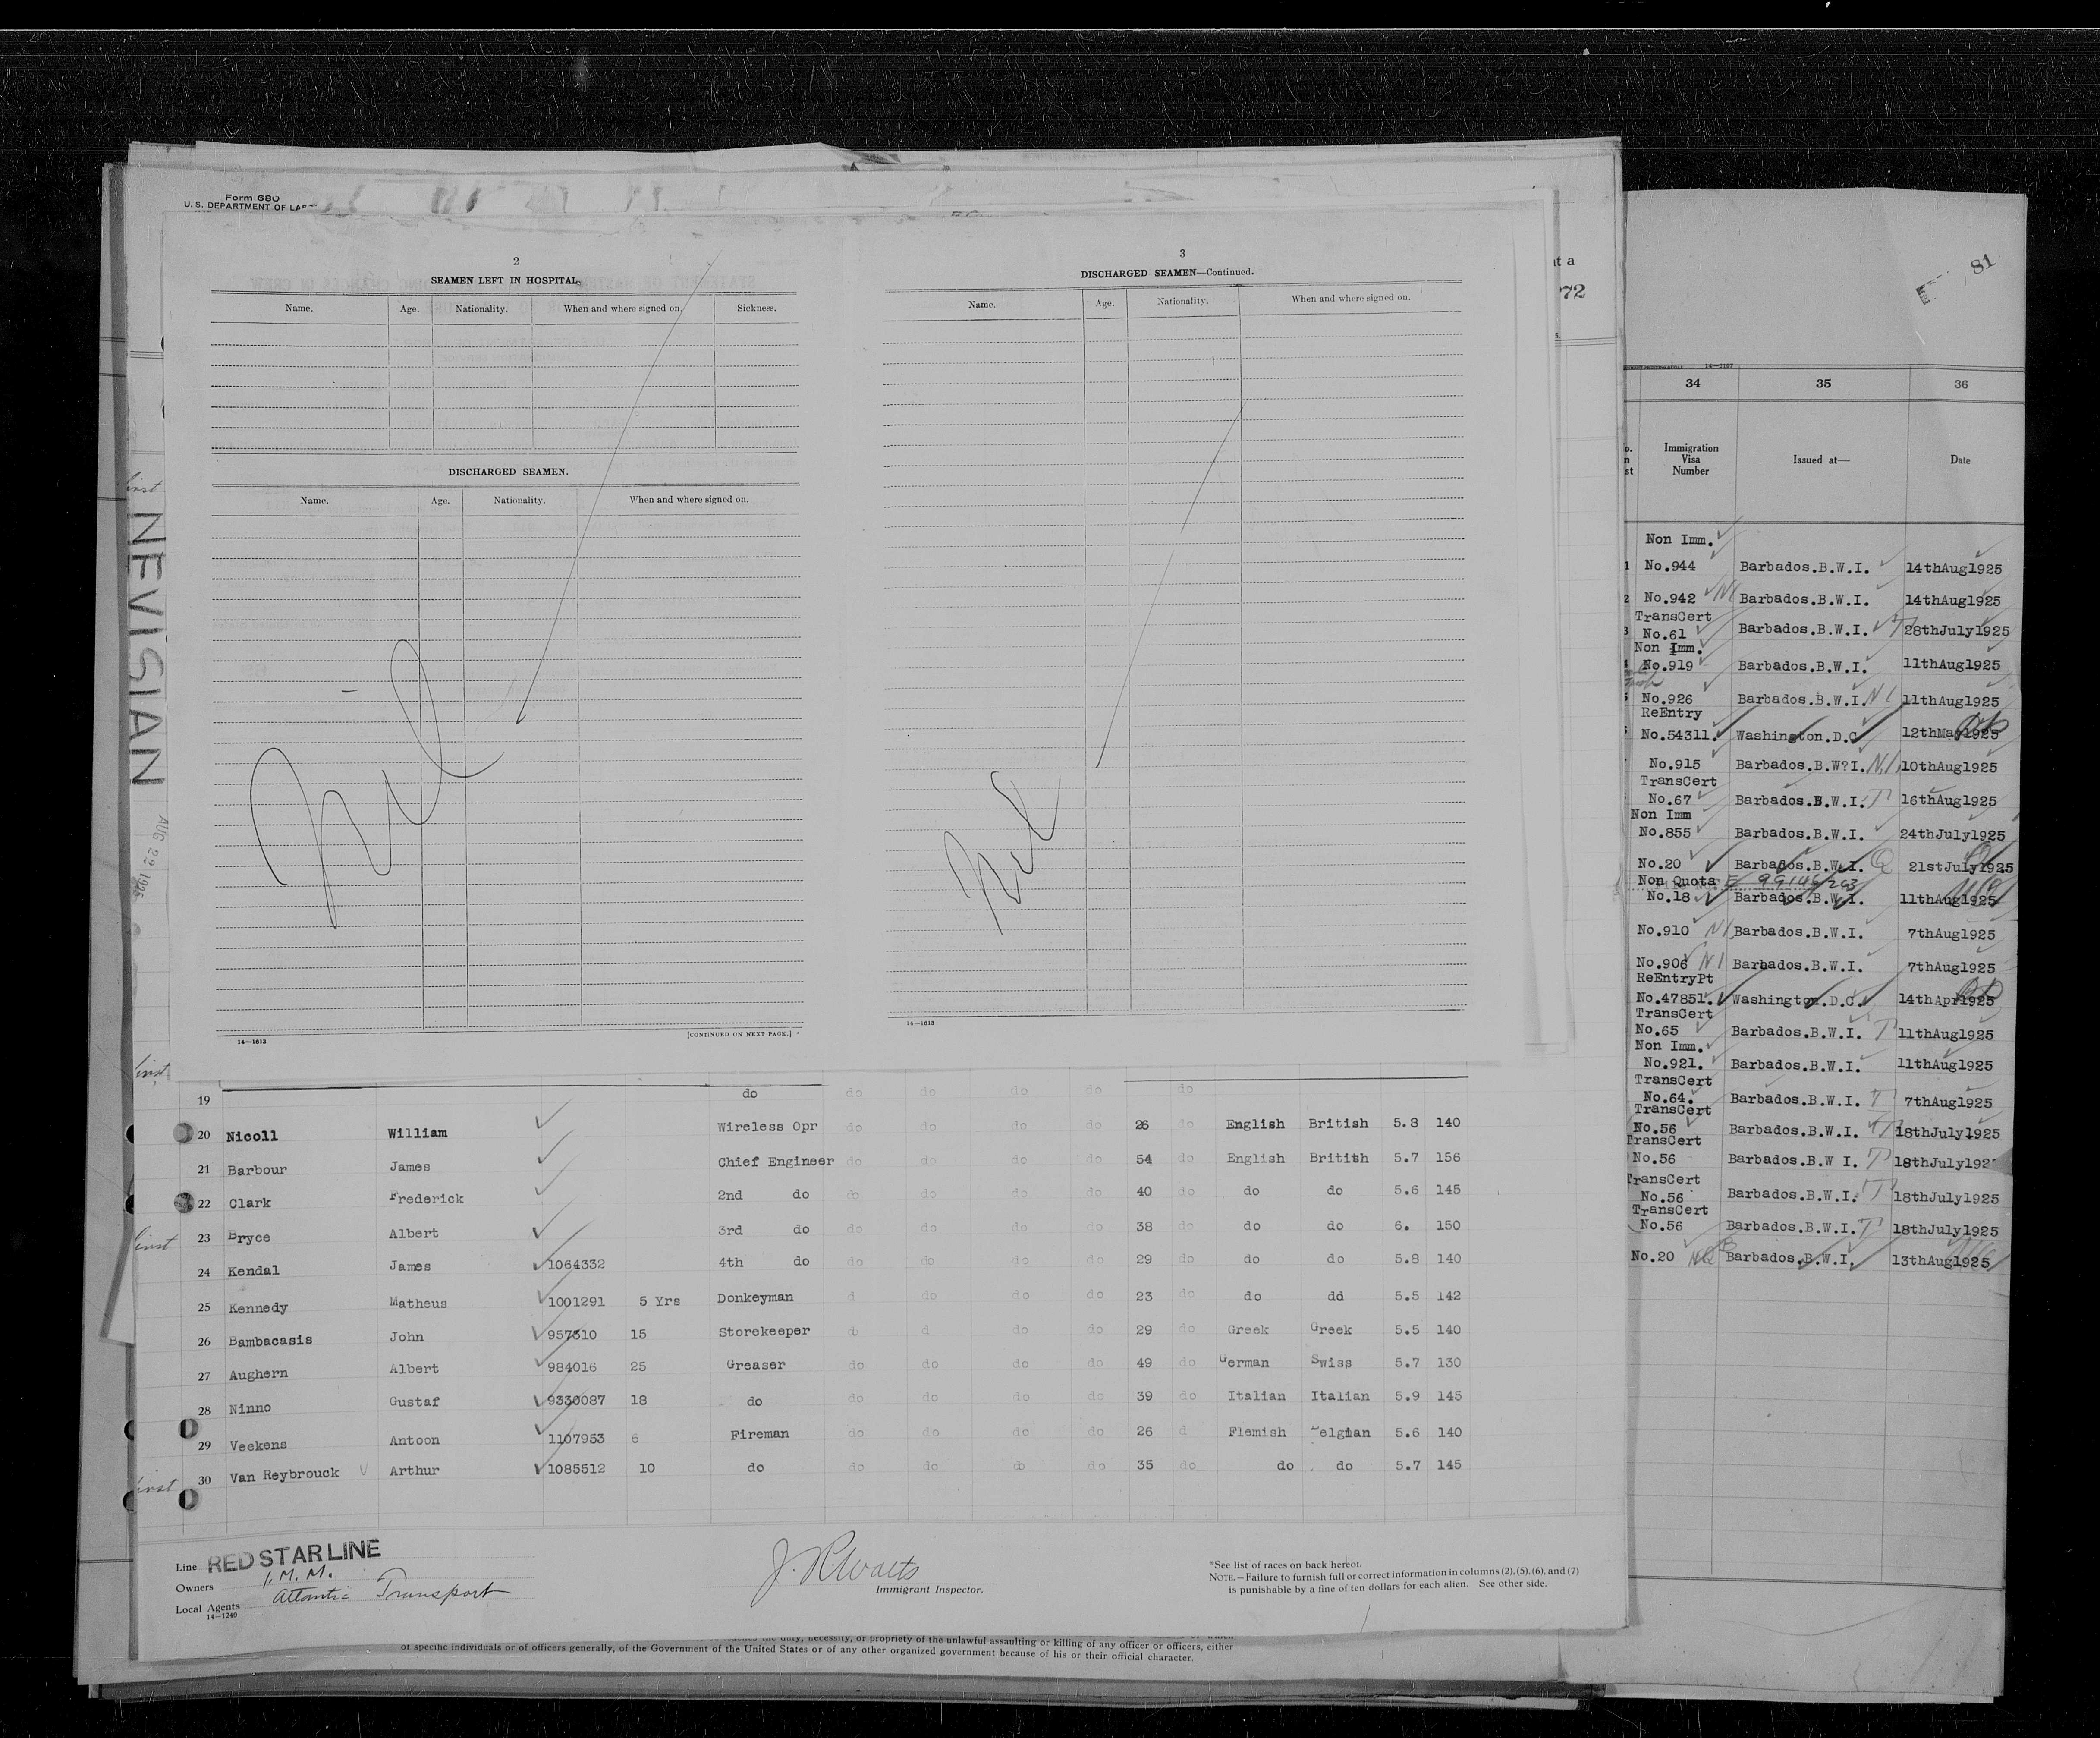 Form 680
U. S. DEPARTMENT OF
2
SEAMEN LEFT IN HOSPITAL.
Name. Age. Nationality. When and where signed on. Sickness.
DISCHARGED SEAMEN.
Name. Age. Nationality. When and where signed on.
Nil
14—1613
[CONTINUED ON NEXT PAGE.]
3
DISCHARGED SEAMEN—Continued.
Name. Age. Nationality. When and where signed on.
Nil
14—1613
NEVISIAN
AUG 22 1925
19 do do do do do do
20 Nicoll William Wireless Opr do do do do 26 do English British 5.8 140
21 Barbour James Chief Engineer do do do do 54 do English British 5.7 156
22 Clark Frederick 2nd do do do do do 40 do do do 5.6 145
23 Bryce Albert 3rd do do do do do 38 do do do 6. 150
24 Kendal James 1064332 4th do do do do do 29 do do do 5.8 140
25 Kennedy Matheus 1001291 5 Yrs Donkeyman d do do do 23 do do dd 5.5 142
26 Bambacasis John 957610 15 Storekeeper do d do do 29 do Greek Greek 5.5 140
27 Aughern Albert 984016 25 Greaser do do do do 49 do German Swiss 5.7 130
28 Ninno Gustaf 9330087 18 do do do do do 39 do Italian Italian 5.9 145
29 Veekens Antoon 1107953 6 Fireman do do do do 26 d Flemish Belgian 5.6 140
30 Van Reybrouck Arthur 1085512 10 do do do do do 35 do do do 5.7 145
Line RED STAR LINE
Owners I.M.M.
Local Agents Atlantic Transport
14—1240
J. R. Watts
Immigrant Inspector.
*See list of races on back hereof.
NOTE.—Failure to furnish full or correct information in columns (2), (5), (6), and (7)
is punishable by a fine of ten dollars for each alien. See other side.
duty, necessity, or propriety of the unlawful assaulting or killing of any officer or officers, either
of specific individuals or of officers generally, of the Government of the United States or of any other organized government because of his or their official character.
81
34 35 36
Immigration Visa Number Issued at— Date
Non Imm.
No.944 Barbados.B.W.I. 14thAug1925
No.942 NI Barbados.B.W.I. 14thAug1925
TransCert
No.61 Barbados.B.W.I. T 28thJuly1925
Non Imm.
No.919 Barbados.B.W.I. 11thAug1925
No.926 Barbados.B.W.I. NI 11thAug1925
ReEntry
No.54311. Washington.D.C 12thMay1925
No.915 Barbados.B.W?I. N.I. 10thAug1925
TransCert
No.67 Barbados.B.W.I. T 16thAug1925
Non Imm
No.855 Barbados.B.W.I. 24thJuly1925
No.20 Barbados.B.W.I. Q 21stJuly1925
Non Quota
No.18 Barbados.B.W.I. 11thAug1925
No.910 NI Barbados.B.W.I. 7thAug1925
No.906 NI Barbados.B.W.I. 7thAug1925
ReEntryPt
No.47851. Washington.D.C. 14thApr1925
TransCert
No.65 Barbados.B.W.I. T 11thAug1925
Non Imm.
No.921. Barbados.B.W.I. 11thAug1925
TransCert
No.64. Barbados.B.W.I. T 7thAug1925
TransCert
No.56 Barbados.B.W.I. T 18thJuly1925
TransCert
No.56 Barbados.B.W I. T 18thJuly192
TransCert
No.56 Barbados.B.W.I. T 18thJuly1925
TransCert
No.56 Barbados.B.W.I. T 18thJuly1925
No.20 NQ Barbados.B.W.I. 13thAug1925